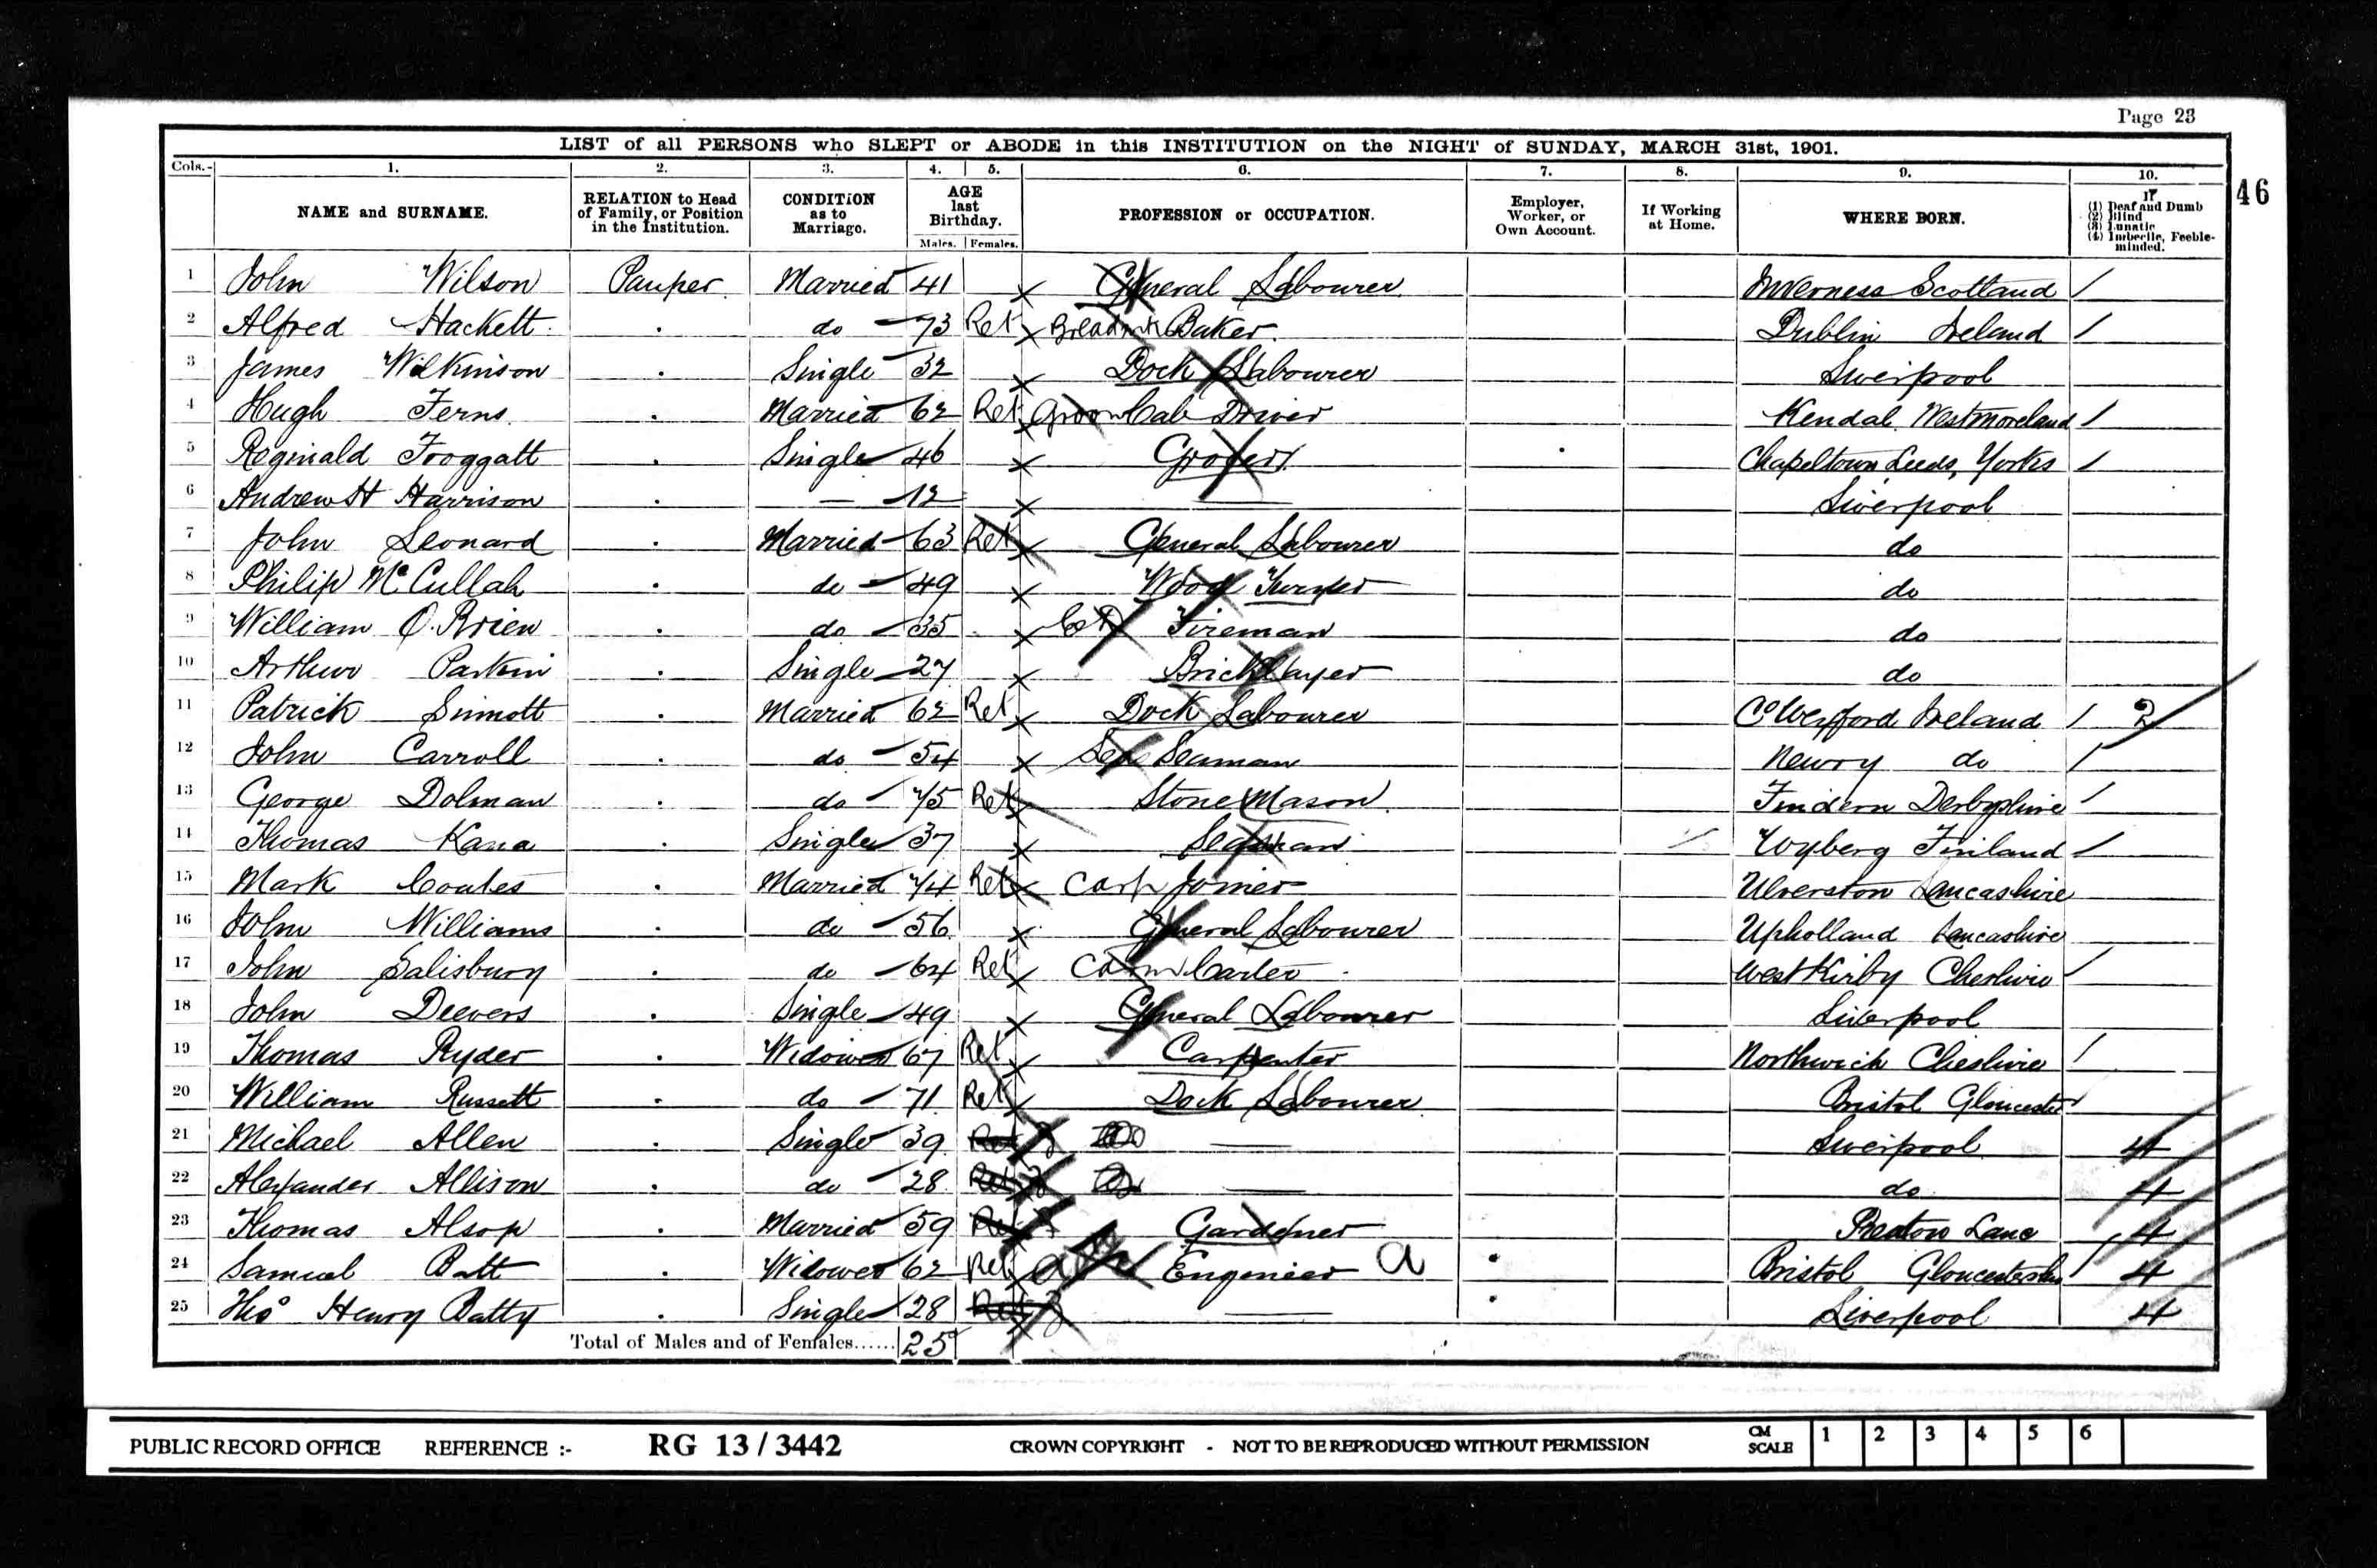 Page 23
LIST of all PERSONS who SLEPT or ABODE in this INSTITUTION on the NIGHT of SUNDAY, MARCH 31st, 1901.
46
Cols.- 1. 2. 3. 4. 5. 6. 7. 8. 9. 10.
NAME and SURNAME. RELATION to Head of Family, or Position in the Institution. CONDITION as to Marriage. AGE last Birthday. Males. Females. PROFESSION or OCCUPATION. Employer, Worker, or Own Account. If Working at Home. WHERE BORN. If (1) Deaf and Dumb (2) Blind (3) Lunatic (4) Imbecile, Feeble-minded.
1 John Wilson Pauper Married 41 General Labourer Inverness Scotland
2 Alfred Hackett do 73 Ret Baker Dublin Ireland
3 James Wilkinson Single 32 Dock Labourer Liverpool
4 Hugh Ferns Married 62 Ret Groom Cab Driver Kendal Westmoreland
5 Reginald Froggatt Single 46 Grocer Chapeltown Leeds, Yorks
6 Andrew H Harrison — 12 — Liverpool
7 John Leonard Married 63 Ret General Labourer do
8 Philip McCullah do 49 Wood Turner do
9 William O'Brien do 35 Fireman do
10 Arthur Parkin Single 27 Bricklayer do
11 Patrick Sinnott Married 62 Ret Dock Labourer Co Wexford Ireland 2
12 John Carroll do 54 Sea Seaman Newry do
13 George Dolman do 75 Ret Stone Mason Findern Derbyshire
14 Thomas Kana Single 37 Seaman Wyberg Finland
15 Mark Coates Married 74 Ret Carp Joiner Ulverston Lancashire
16 John Williams do 56 General Labourer Upholland Lancashire
17 John Salisbury do 64 Ret Carm Carter West Kirby Cheshire
18 John Deevers Single 49 General Labourer Liverpool
19 Thomas Ryder Widower 67 Ret Carpenter Northwich Cheshire
20 William Russett do 71 Ret Dock Labourer Bristol Gloucester
21 Michael Allen Single 39 Ret — Liverpool 4
22 Alexander Allison do 28 Ret — do 4
23 Thomas Alsop Married 59 Ret Gardener Preston Lanc 4
24 Samuel Batt Widower 62 Ret Engenieer a Bristol Gloucestersh 4
25 Thos Henry Batty Single 28 Ret — Liverpool 4
Total of Males and of Females...... 25
PUBLIC RECORD OFFICE REFERENCE :- RG 13 / 3442 CROWN COPYRIGHT - NOT TO BE REPRODUCED WITHOUT PERMISSION CM SCALE 1 2 3 4 5 6